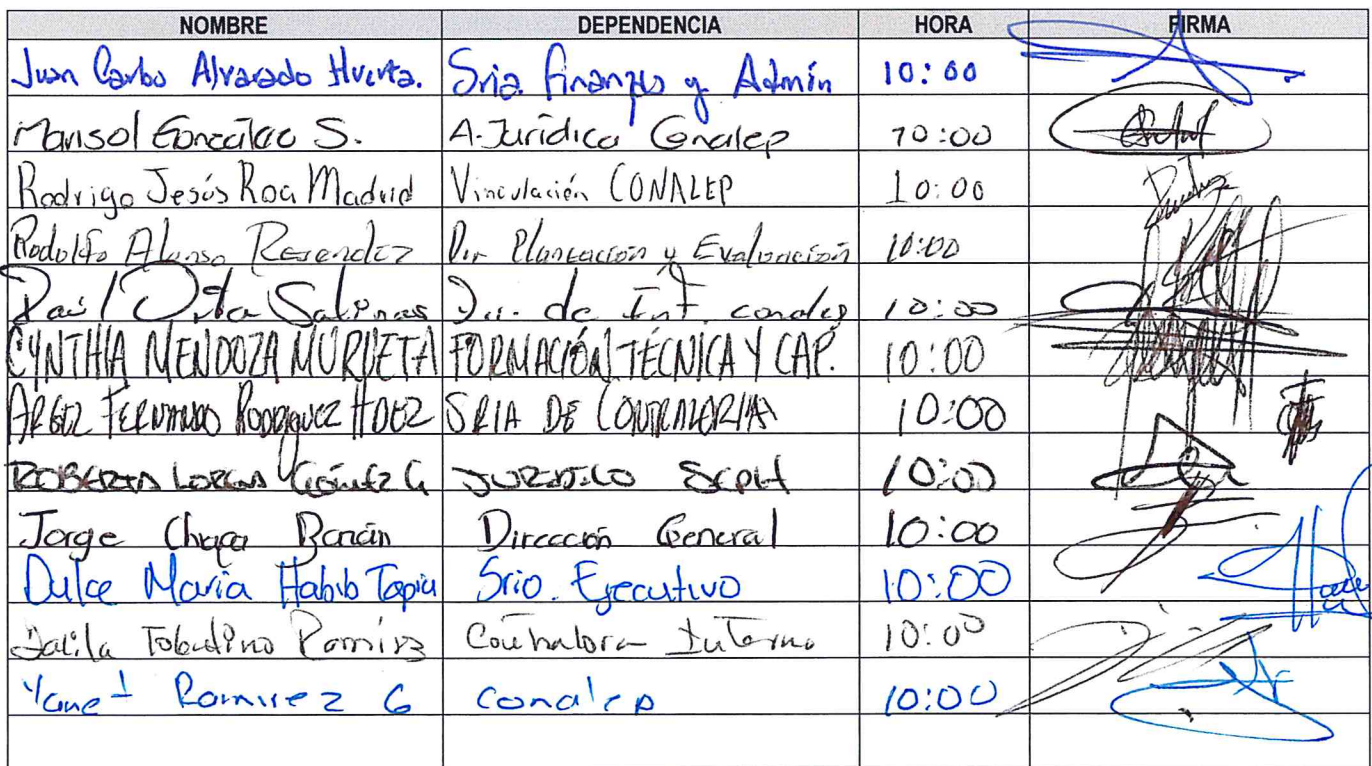 NOMBRE DEPENDENCIA HORA FIRMA
Juan Carlos Alvarado Huerta. Sria. Finanzas y Admin 10:00
Marisol González S. A. Jurídica Conalep 10:00
Rodrigo Jesús Roa Madrid Vinculación CONALEP 10:00
Rodolfo Alonso Resendez Dir Planeación y Evaluación 10:00
Salinas Dir. de Inf. conalep 10:00
CYNTHIA MENDOZA MURUETA FORMACIÓN TÉCNICA Y CAP. 10:00
FERNANDO RODRIGUEZ HDEZ SRIA DE CONTRALORIA 10:00
ROBERTO GÓMEZ G JURIDICO SEPH 10:00
Jorge Chapa Dirección General 10:00
Dulce María Habib Tapia Srio. Ejecutivo 10:00
Dalila Tolentino Ramírez Contralora Interno 10:00
Yanet Ramirez G Conalep 10:00